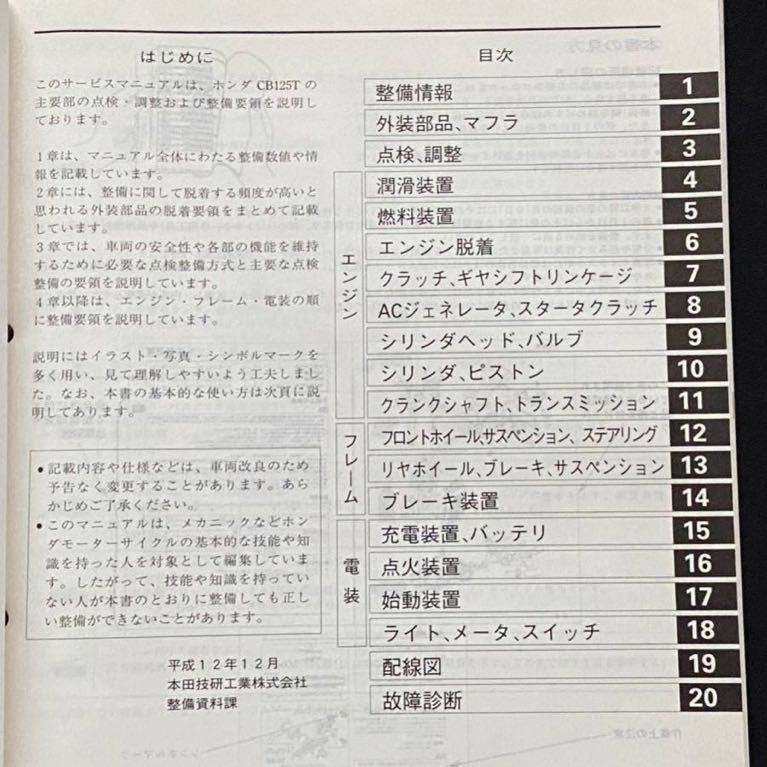 はじめに
このサービスマニュアルは、ホンダ CB125T の
主要部の点検・調整および整備要領を説明し
ております。
1章は、マニュアル全体にわたる整備数値や情
報を記載しています。
2章には、整備に関して脱着する頻度が高いと
思われる外装部品の脱着要領をまとめて記載
しています。
3章では、車両の安全性や各部の機能を維持
するために必要な点検整備方式と主要な点検
整備の要領を説明しています。
4章以降は、エンジン・フレーム・電装の順
に整備要領を説明しています。
説明にはイラスト・写真・シンボルマークを
多く用い、見て理解しやすいよう工夫しまし
た。なお、本書の基本的な使い方は次頁に説
明してあります。
●記載内容や仕様などは、車両改良のため
予告なく変更することがあります。あら
かじめご了承ください。
●このマニュアルは、メカニックなどホン
ダモーターサイクルの基本的な技能や知
識を持った人を対象として編集していま
す。したがって、技能や知識を持ってい
ない人が本書のとおりに整備しても正し
い整備ができないことがあります。
平成12年12月
本田技研工業株式会社
整備資料課
目次
整備情報 1
外装部品、マフラ 2
点検、調整 3
エンジン
潤滑装置 4
燃料装置 5
エンジン脱着 6
クラッチ、ギヤシフトリンケージ 7
ACジェネレータ、スタータクラッチ 8
シリンダヘッド、バルブ 9
シリンダ、ピストン 10
クランクシャフト、トランスミッション 11
フレーム
フロントホイール、サスペンション、ステアリング 12
リヤホイール、ブレーキ、サスペンション 13
ブレーキ装置 14
電装
充電装置、バッテリ 15
点火装置 16
始動装置 17
ライト、メータ、スイッチ 18
配線図 19
故障診断 20
本書の見方
作業上の注意
シンボルマーク